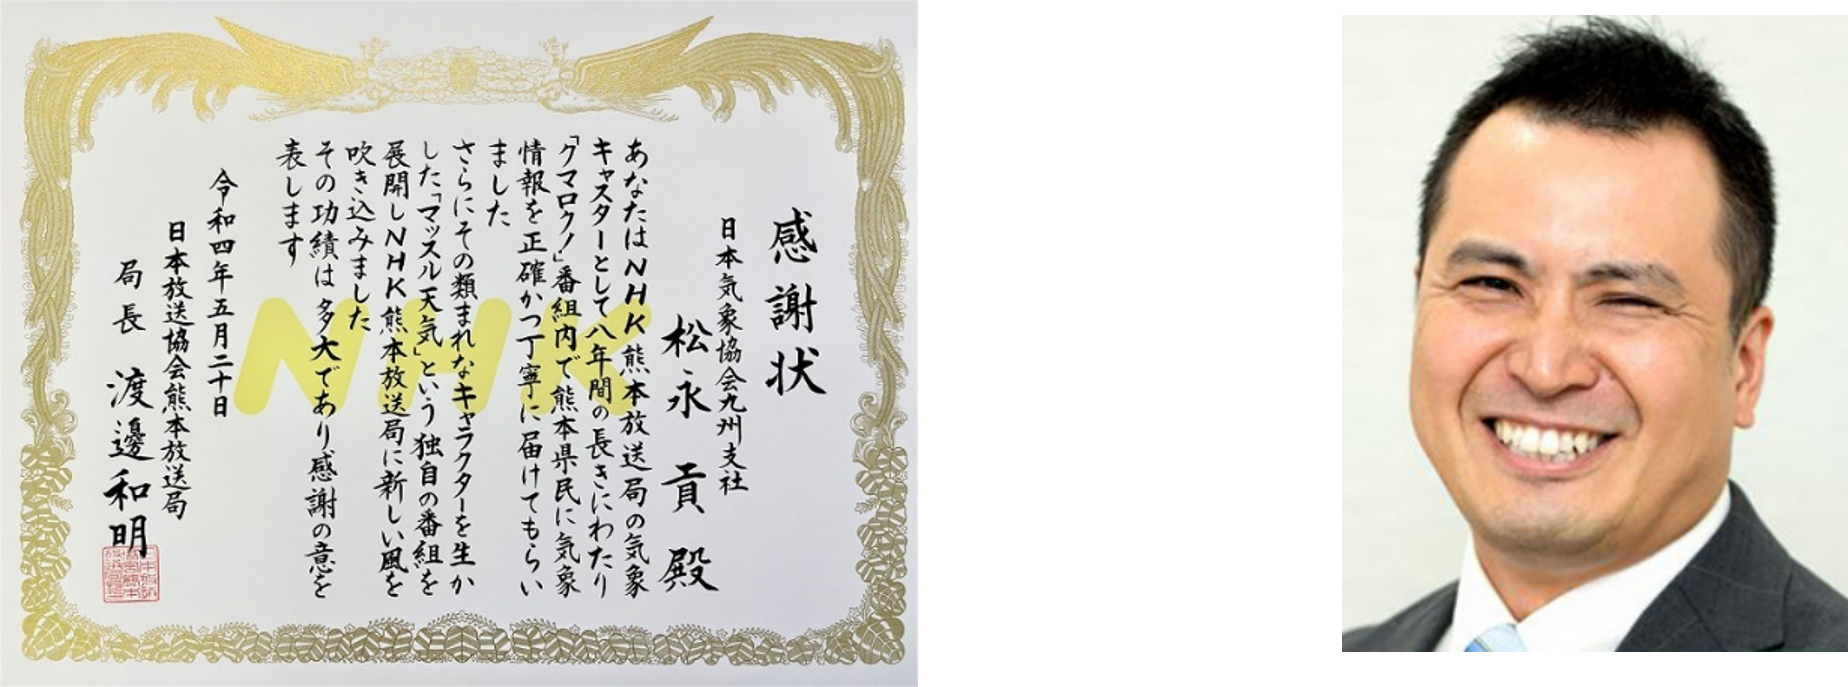 感謝状
日本気象協会九州支社
松永 貢 殿
あなたはNHK熊本放送局の気象
キャスターとして八年間の長きにわたり
「クマロク!」番組内で熊本県民に気象
情報を正確かつ丁寧に届けてもらい
ました
さらにその類まれなキャラクターを生か
した「マッスル天気」という独自の番組を
展開しNHK熊本放送局に新しい風を
吹き込みました
その功績は多大であり感謝の意を
表します
令和四年五月二十日
日本放送協会熊本放送局
局長 渡邊和明
NHK